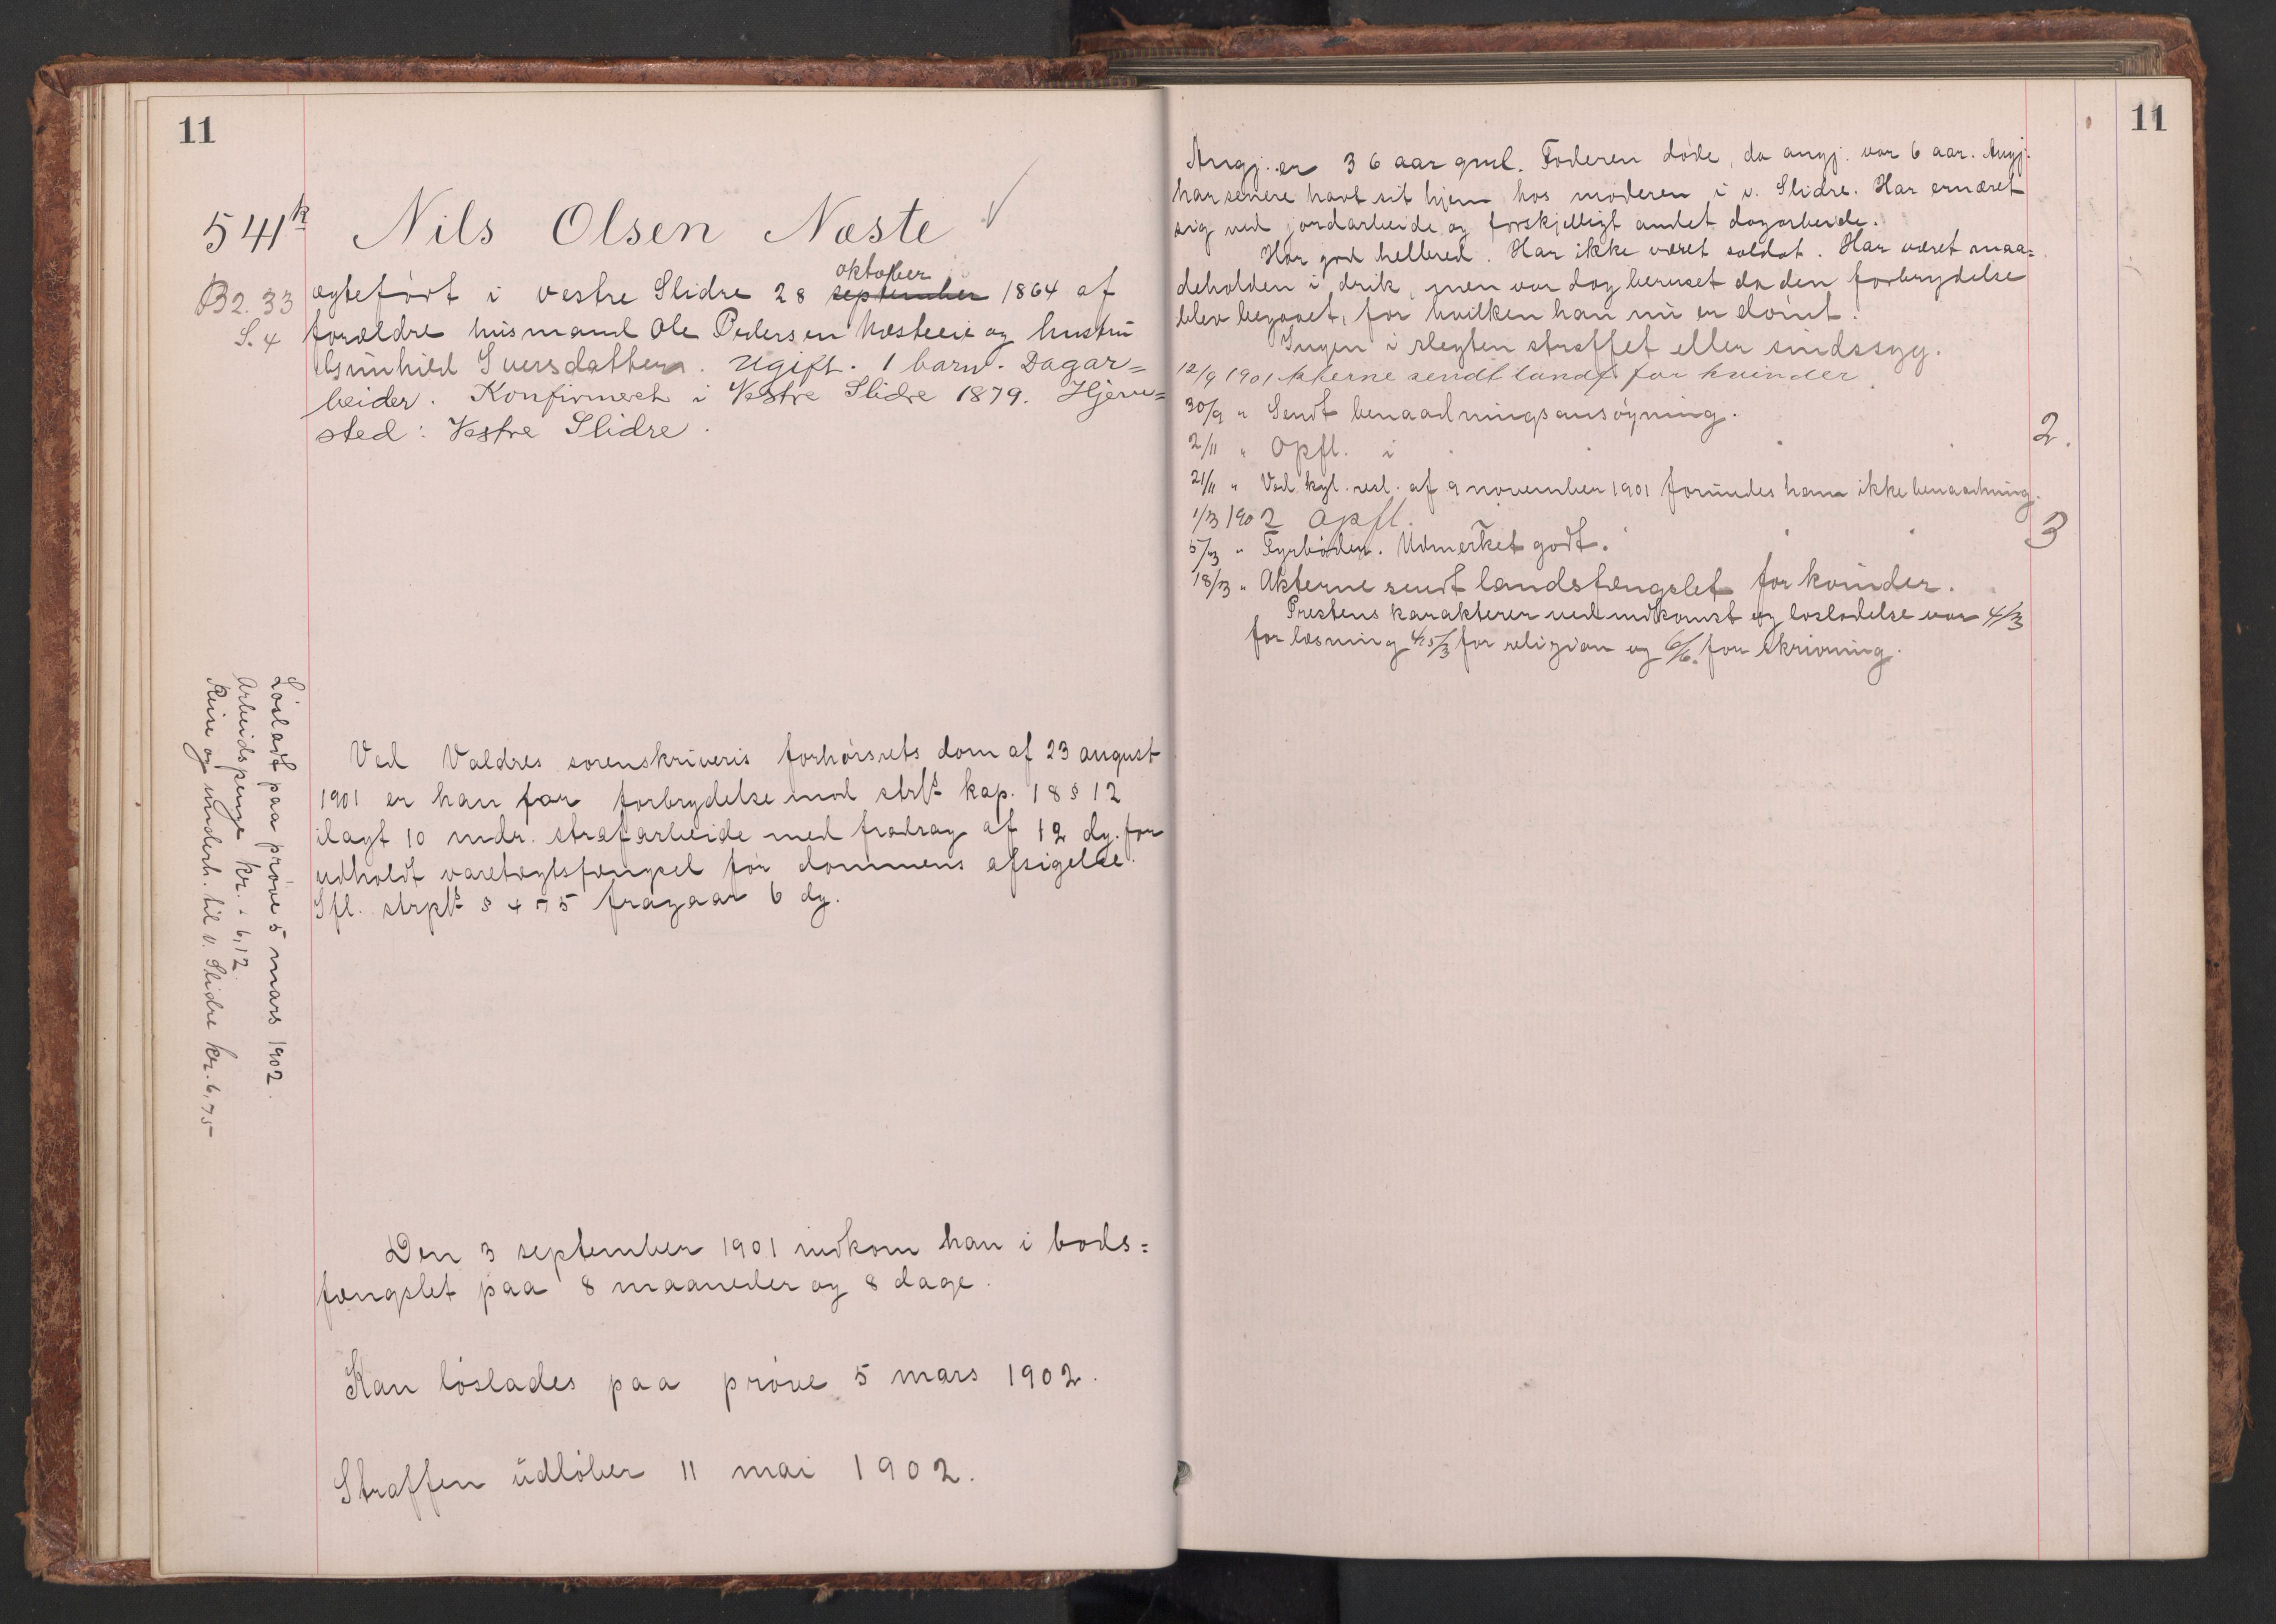 11
541k Nils Olsen Næste
B2. 33
S. 4
oktober
ægtefödt i vestre Slidre 28 september 1864 af
forældre husmand Ole Pedersen Næsteeie og hustru
Gunhild Iversdatter. Ugift. 1 barn. Dagar=
beider. Konfirmeret i Vestre Slidre 1879. Hjem=
sted: Vestre Slidre.
Løsladt paa prøve 5 mars 1902.
Arbeidspenge kr. - 6,12.
Reise og undersk. til v. Slidre kr. 6,75
Ved Valdres sorenskriveris forhörsrets dom af 23 august
1901 er han for forbrydelse mod strls kap. 18 § 12
ilagt 10 mdr. strafarbeide med fradrag af 12 dg. for
udholdt varetægtsfængsel för dommens afsigelse.
Ifl. strpls § 475 fragaar 6 dg.
Den 3 september 1901 indkom han i bods=
fængslet paa 8 maaneder og 8 dage.
Kan löslades paa pröve 5 mars 1902.
Straffen udlöber 11 mai 1902.
11
Angj. er 36 aar gml. Faderen döde, da angj. var 6 aar. Angj.
har senere havt sit hjem hos moderen i v. Slidre. Har ernæret
sig ved jordarbeide og forskjelligt andet dagarbeide.
Har god helbred. Har ikke været soldat. Har været maa=
deholden i drik, men var dog beruset da den forbrydelse
blev begaaet, for hvilken han nu er dömt.
Ingen i slegten straffet eller sindssyg.
12/9 1901 Akterne sendt landsf. for kvinder
30/9 " Sendt benaadningsansögning.
2/11 " Opfl. i 2.
21/11 " Ved kgl. resl. af 9 november 1901 forundes ham ikke benaadning.
1/3 1902 Opfl. 3
5/3 " Fyrböder. Udmerket godt.
18/3 " Akterne sendt landsfængslet for kvinder.
Prestens karakterer ved indkomst og löslatelse var 4/3
for læsning 4,5/3 for religion og 6/6. for skrivning.